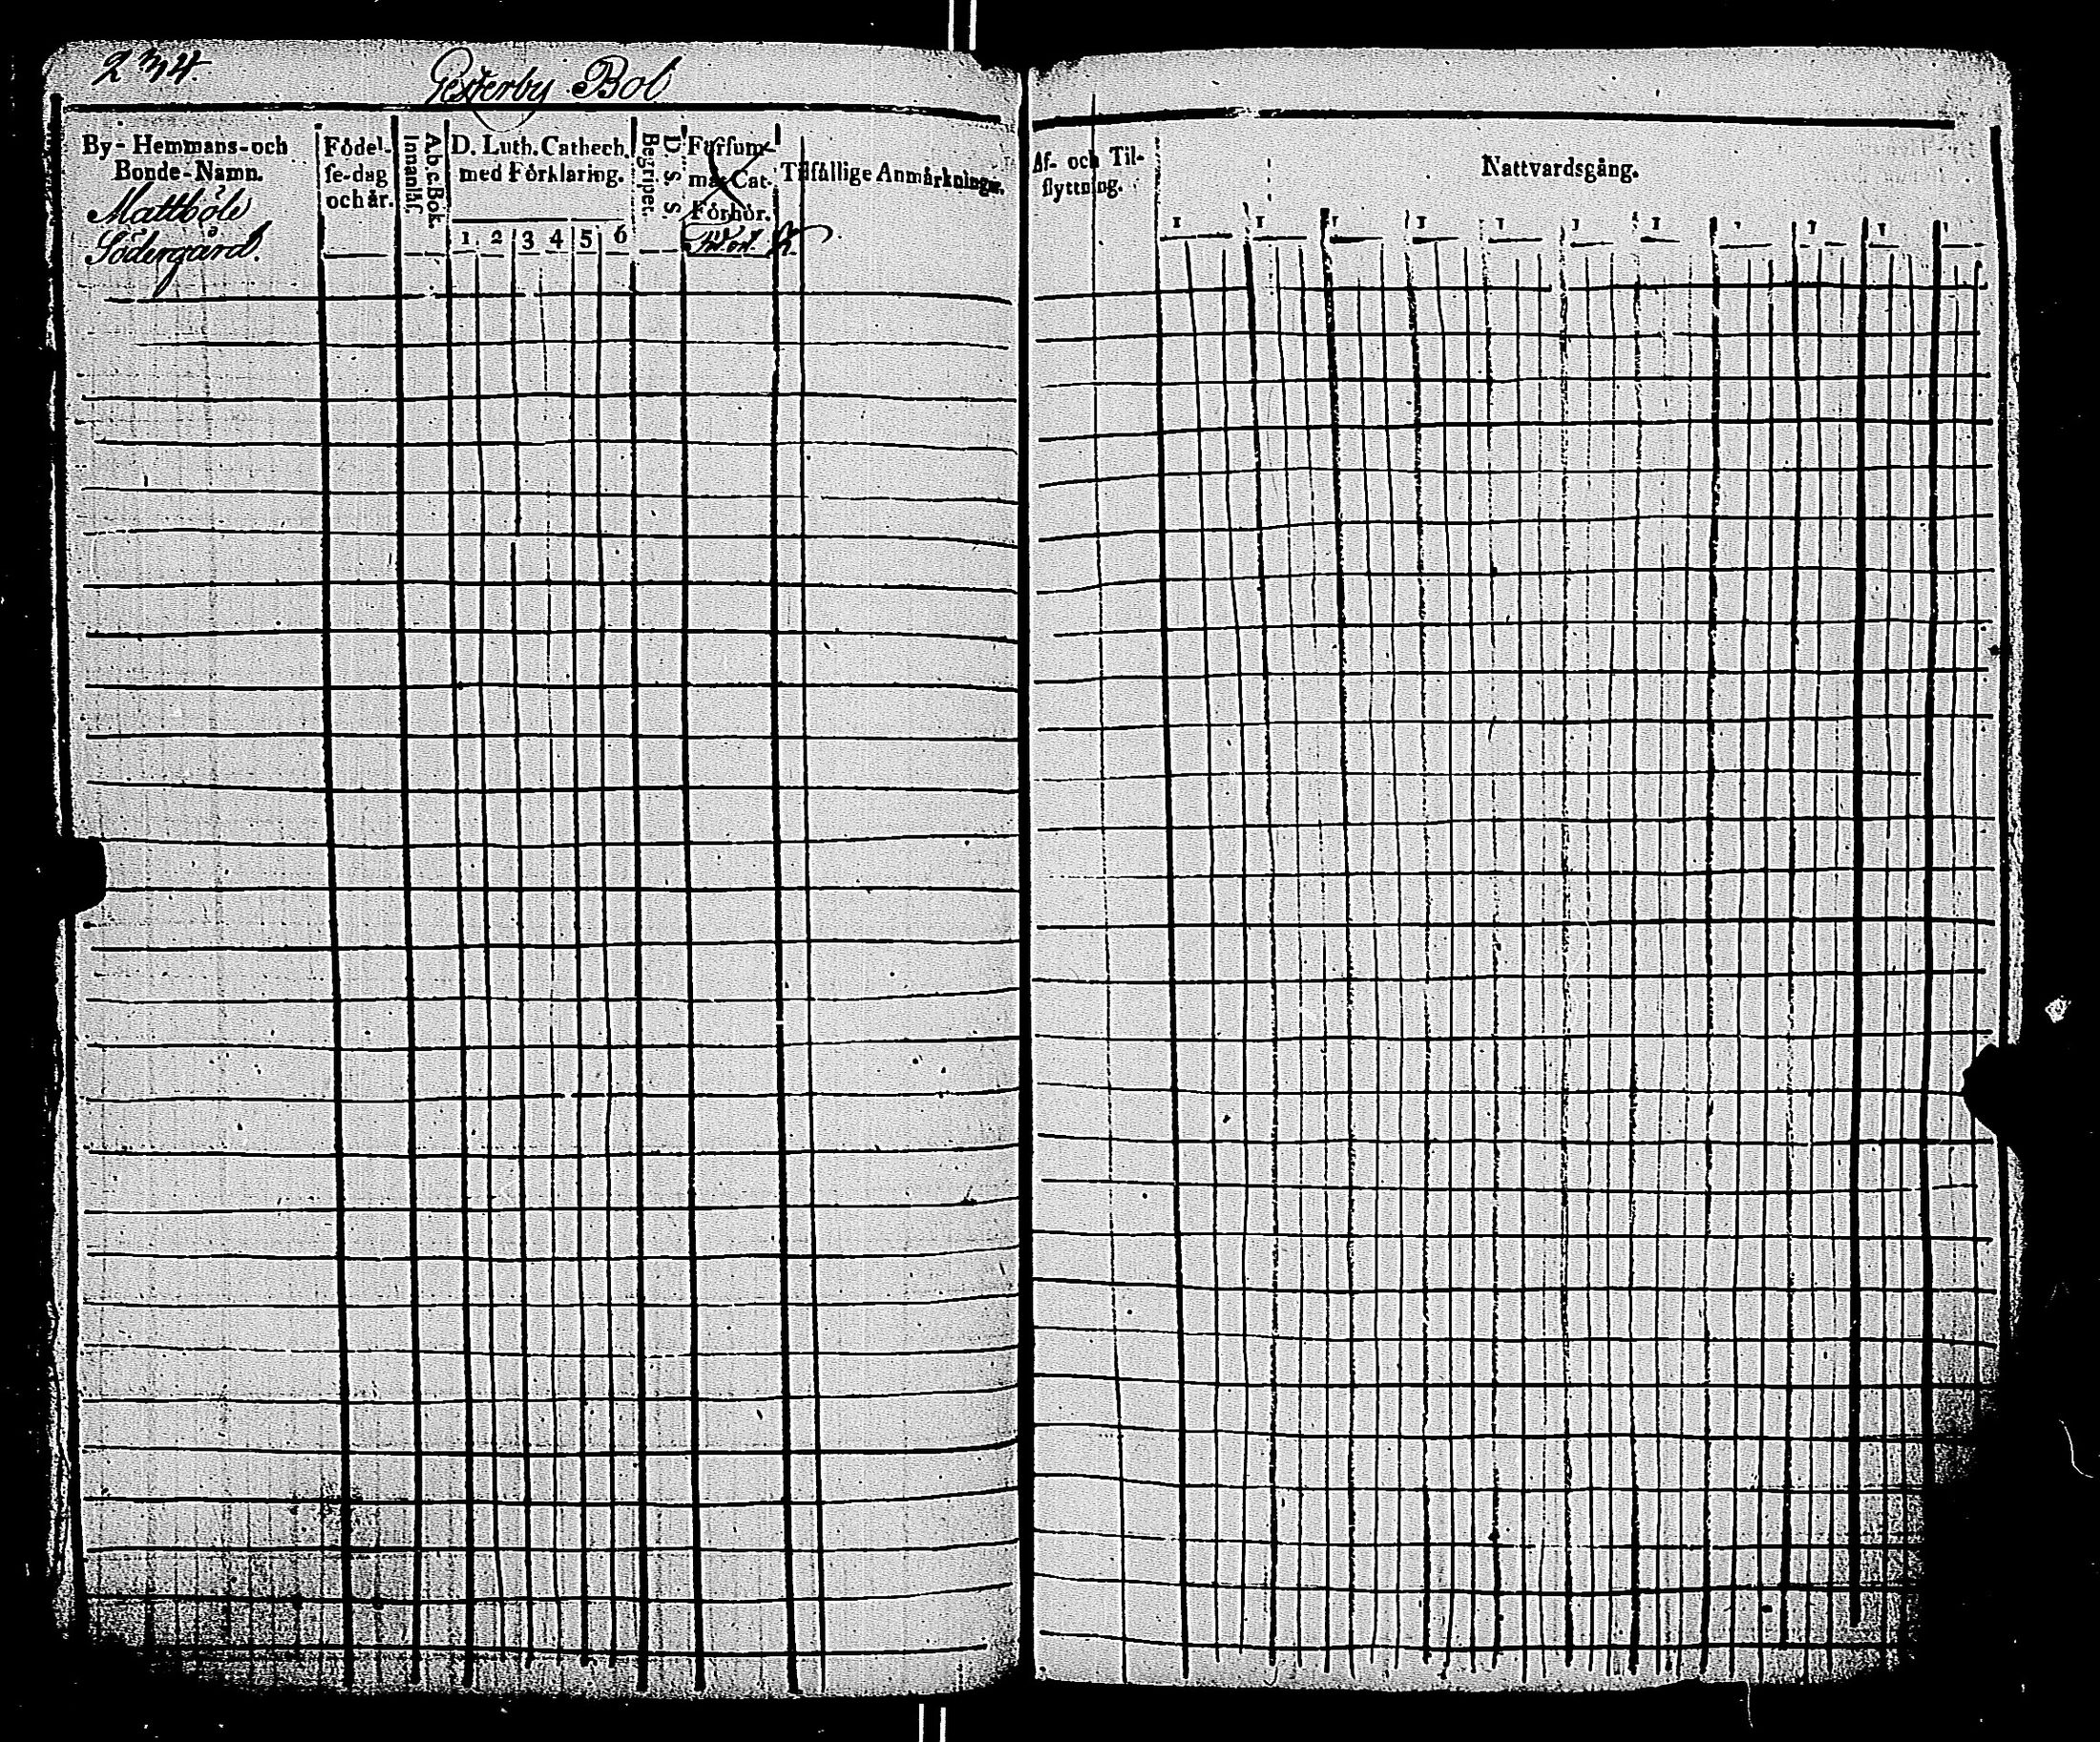 234.
Gesterby Bol
By- Hemmans- och
Bonde-Namn.
Mattböle
Södergård.
Födel-
se-dag
och år.
A.b.c. Bok.
Innanläs.
D. Luth. Cathech.
med Förklaring.
1 2 3 4 5 6
D. S. S.
Begripet.
Försum-
mat Cat.
Förhör.
Tilfällige Anmärkningar.
Af- och Til-
flyttning.
Nattvardsgång.
1 1 1 1 1 1 1 1 1 1 1